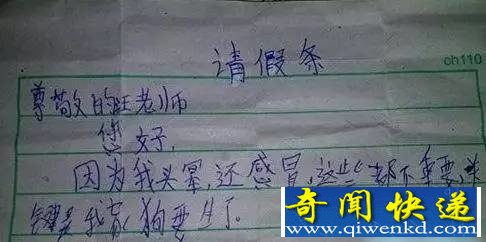 请假条
ch110
尊敬的旺老师
您好,
因为我头晕,还感冒,这些都不重要,关
键是我家狗要生了。
奇闻快递
www.qiwenkd.com